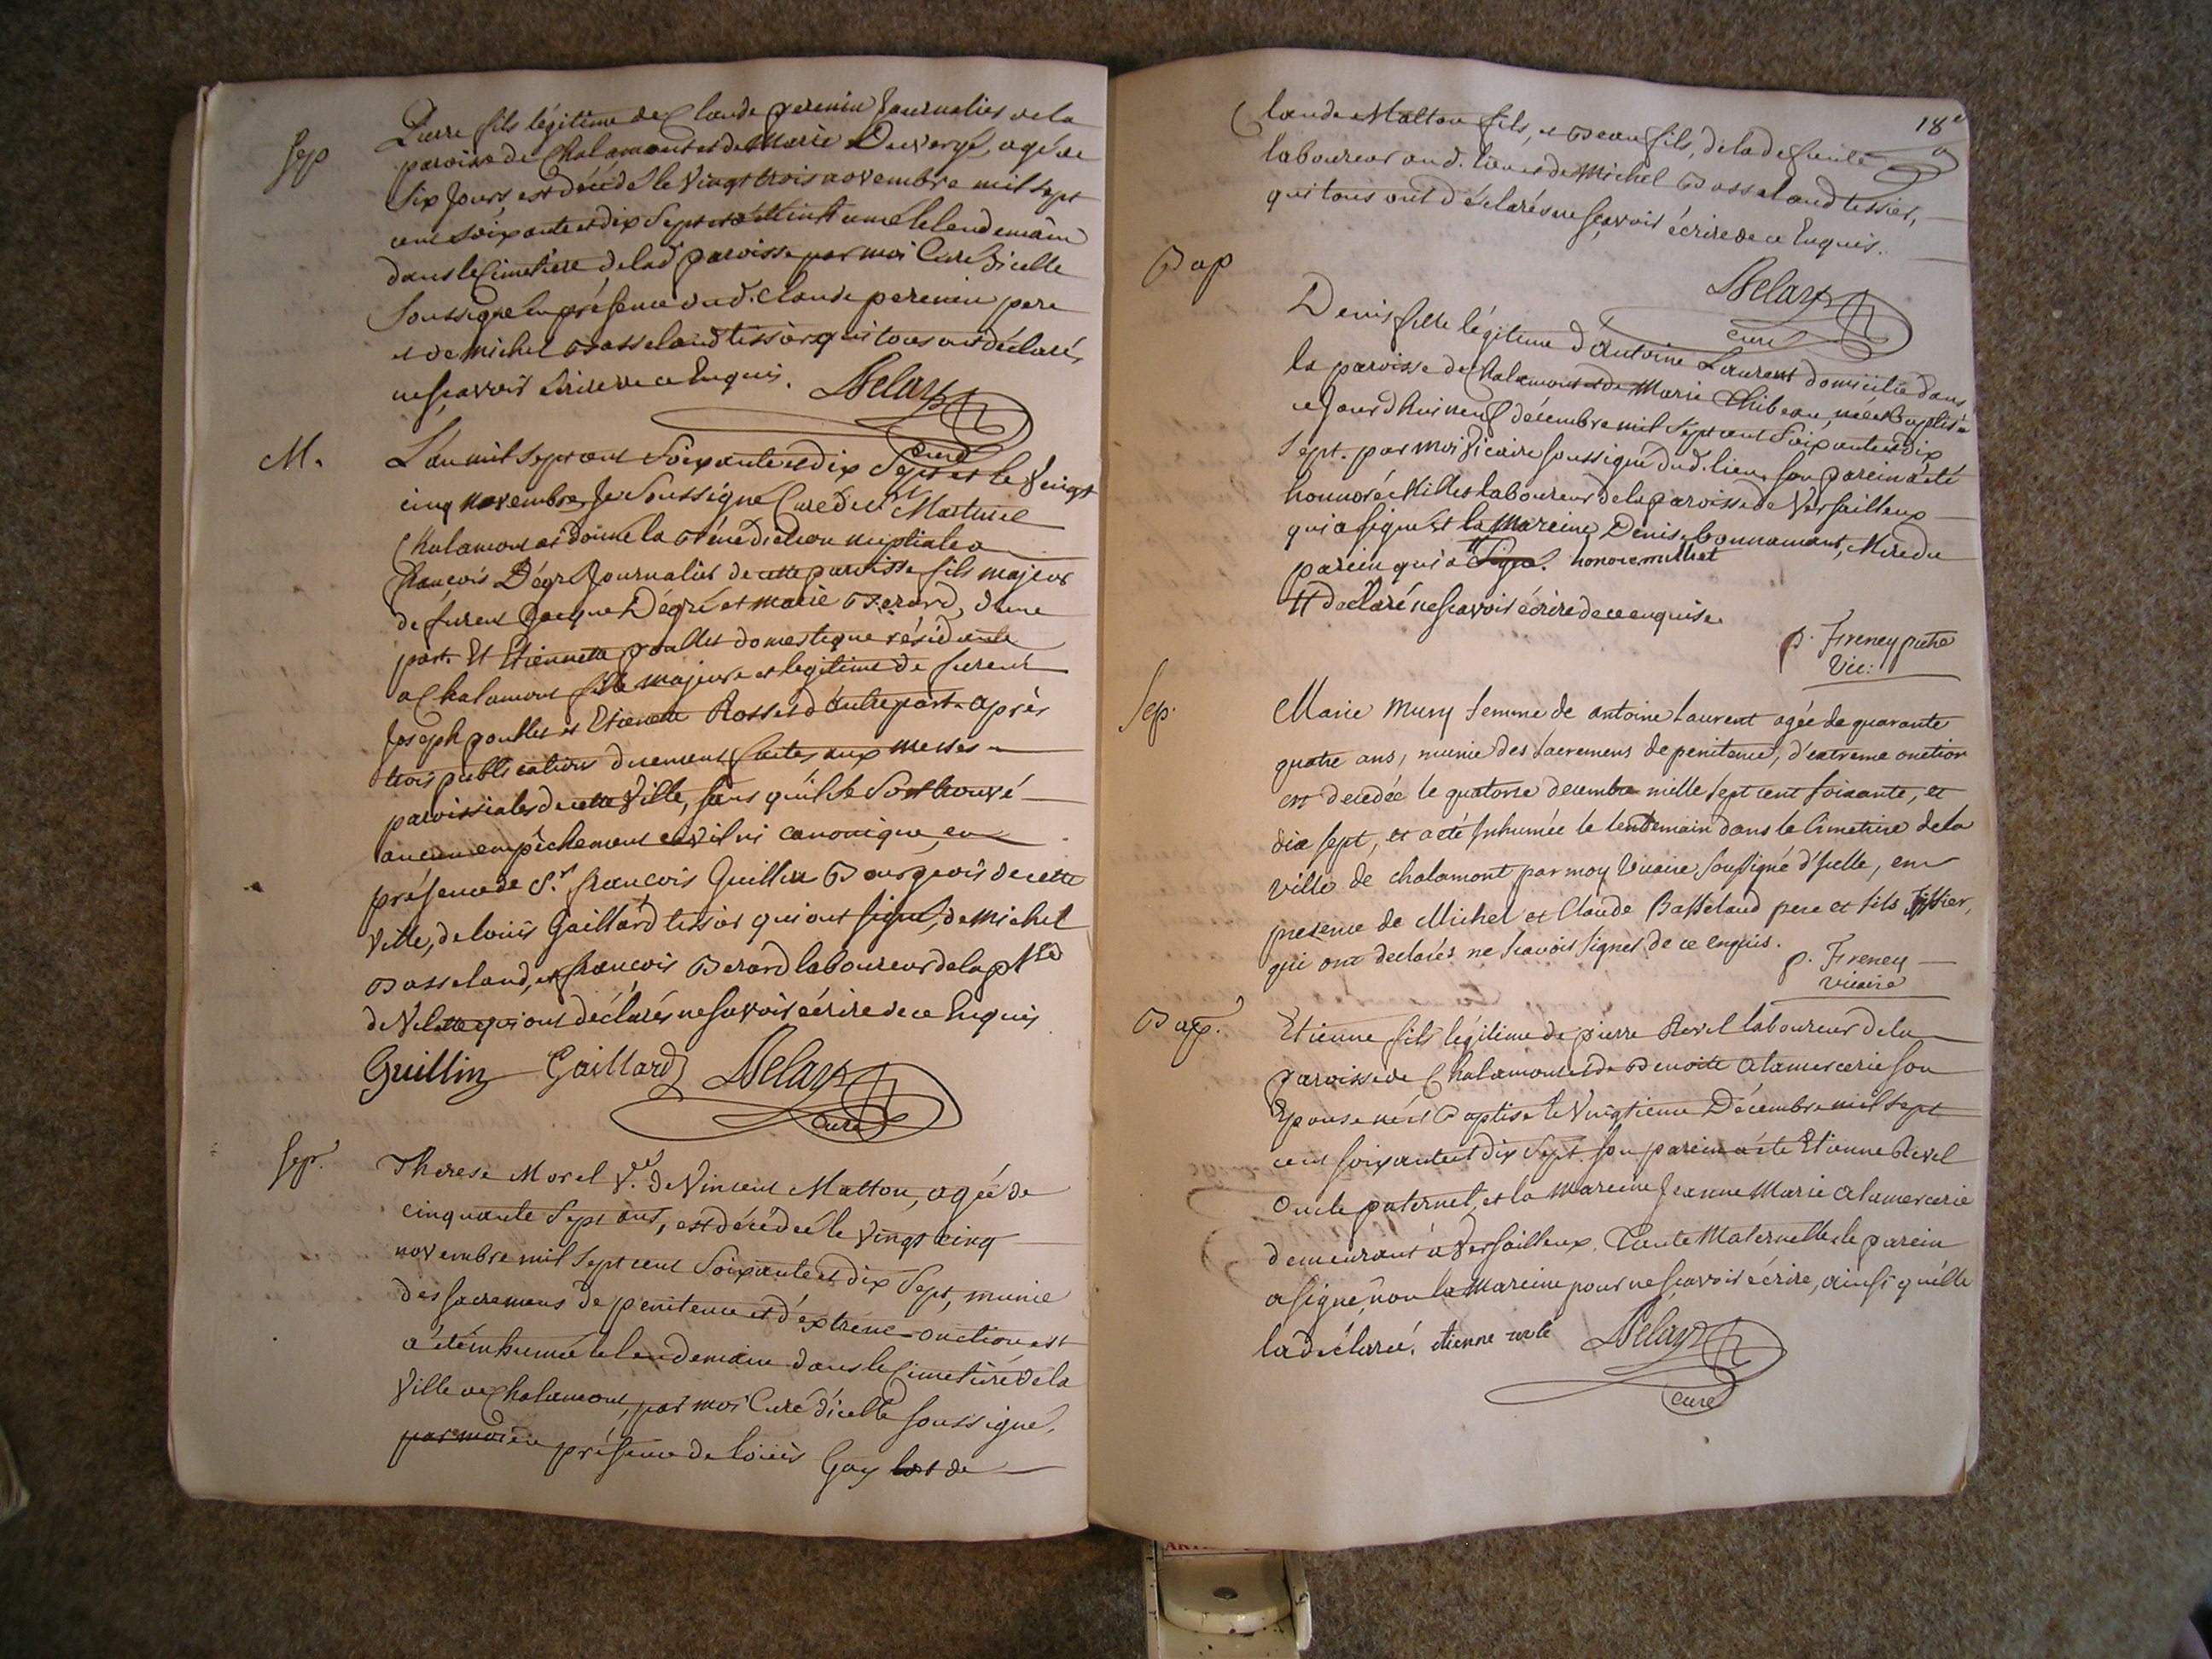 Sep
Pierre fils légitime de Claude perenin Journalier de la
paroisse de Chalamont et de Marie Duvergé, agé de
six Jours, est décédé le vingt trois novembre mil sept
cent soixante et dix sept et a été inhumé le lendemain
dans le Cimetiere de lad. paroisse par moi Curé d'icelle
soussigné en présence dud. Claude perenin pere
et de michel Basseland tissier qui tous ont déclarés
ne sçavoir écrire de ce Enquis. Delaz
curé
M.
L'an mil sept cent soixante et dix sept et le vingt
cinq novembre Je soussigné Curé de St Martin de
Chalamont ai donné la Bénédiction nuptiale a
françois Dégré Journalier de cette paroisse fils majeur
de furent Jacque Dégré et marie Berard, d'une
part. Et Etiennette poulles domestique résidente
a Chalamont fille majeure et legitime de furent
Joseph poulles et Etiennette Rosset d'autre part. après
trois publications duement faites aux messes
paroissiales de cette ville, sans qu'il se soit trouvé
aucun empêchement civil ni canonique, en
présence de S.r françois Guillin Bourgeois de cette
ville, de louis Gaillard tissier qui ont signé, de michel
Basseland, et françois Berard laboureur de la psse
de Vilette qui ont déclarés ne savoir écrire de ce Enquis
Guillin Gaillard Delaz
curé
Sep.
Therese Morel Ve. de Vincent Matton, agée de
cinquante sept ans, est décédée le vingt cinq
novembre mil sept cent soixante et dix sept, munie
des sacremens de penitence et d'extrême-onction et
a été inhumée le lendemain dans le Cimetiere de la
ville de Chalamont, par moi Curé d'icelle soussigné,
par moi en présence de louis Gay et de
18e
Claude Matton fils, et Beau fils, de la defunte
laboureur aud. lieu et de Michel Basseland tissier,
qui tous ont déclarés ne sçavoir écrire de ce Enquis.
Delaz
curé
Bap
Denis fille légitime d'Antoine Laurent domicilié dans
la paroisse de Chalamont et de Marie Thibeau, née et baptisée
ce Jourd'hui neuf décembre mil sept cent soixante et dix
sept. par moi vicaire soussigné dud. lieu, son parein a été
honnoré Millet laboureur de la paroisse de Versailleux
qui a signé et la Mareine Denise Bonnamant, Mere du
parein qui a signé. honore millet
# declaré ne sçavoir écrire de ce enquise
p. Freney pretre
Vic:
Sep.
Marie Mury femme de antoine Laurent agée de quarante
quatre ans, munie des sacremens de penitence, d'extreme onction
est decedée le quatorze decembre mille sept cent soixante, et
dix sept, et a été Inhumée le lendemain dans le Cimetiere de la
ville de chalamont par moy vicaire soussigné d'icelle, en
presence de Michel et Claude Basseland pere et fils tissier,
qui ont declarés ne scavoir signer de ce enquis.
p. Freney
vicaire
Bap.
Etienne fils légitime de pierre Revel laboureur de la
paroisse de Chalamont et de Benoitte Alamercerie son
Epouse né et Baptisé le vingtieme Décembre mil sept
cent soixante et dix sept. son parein a été Etienne Revel
oncle paternel, et la Mareine Jeanne Marie Alamercerie
demeurant a Versailleux, Tante Maternelle, le parein
a signé, non la Mareine pour ne sçavoir écrire, ainsi qu'elle
la déclaré. etienne Delaz
curé